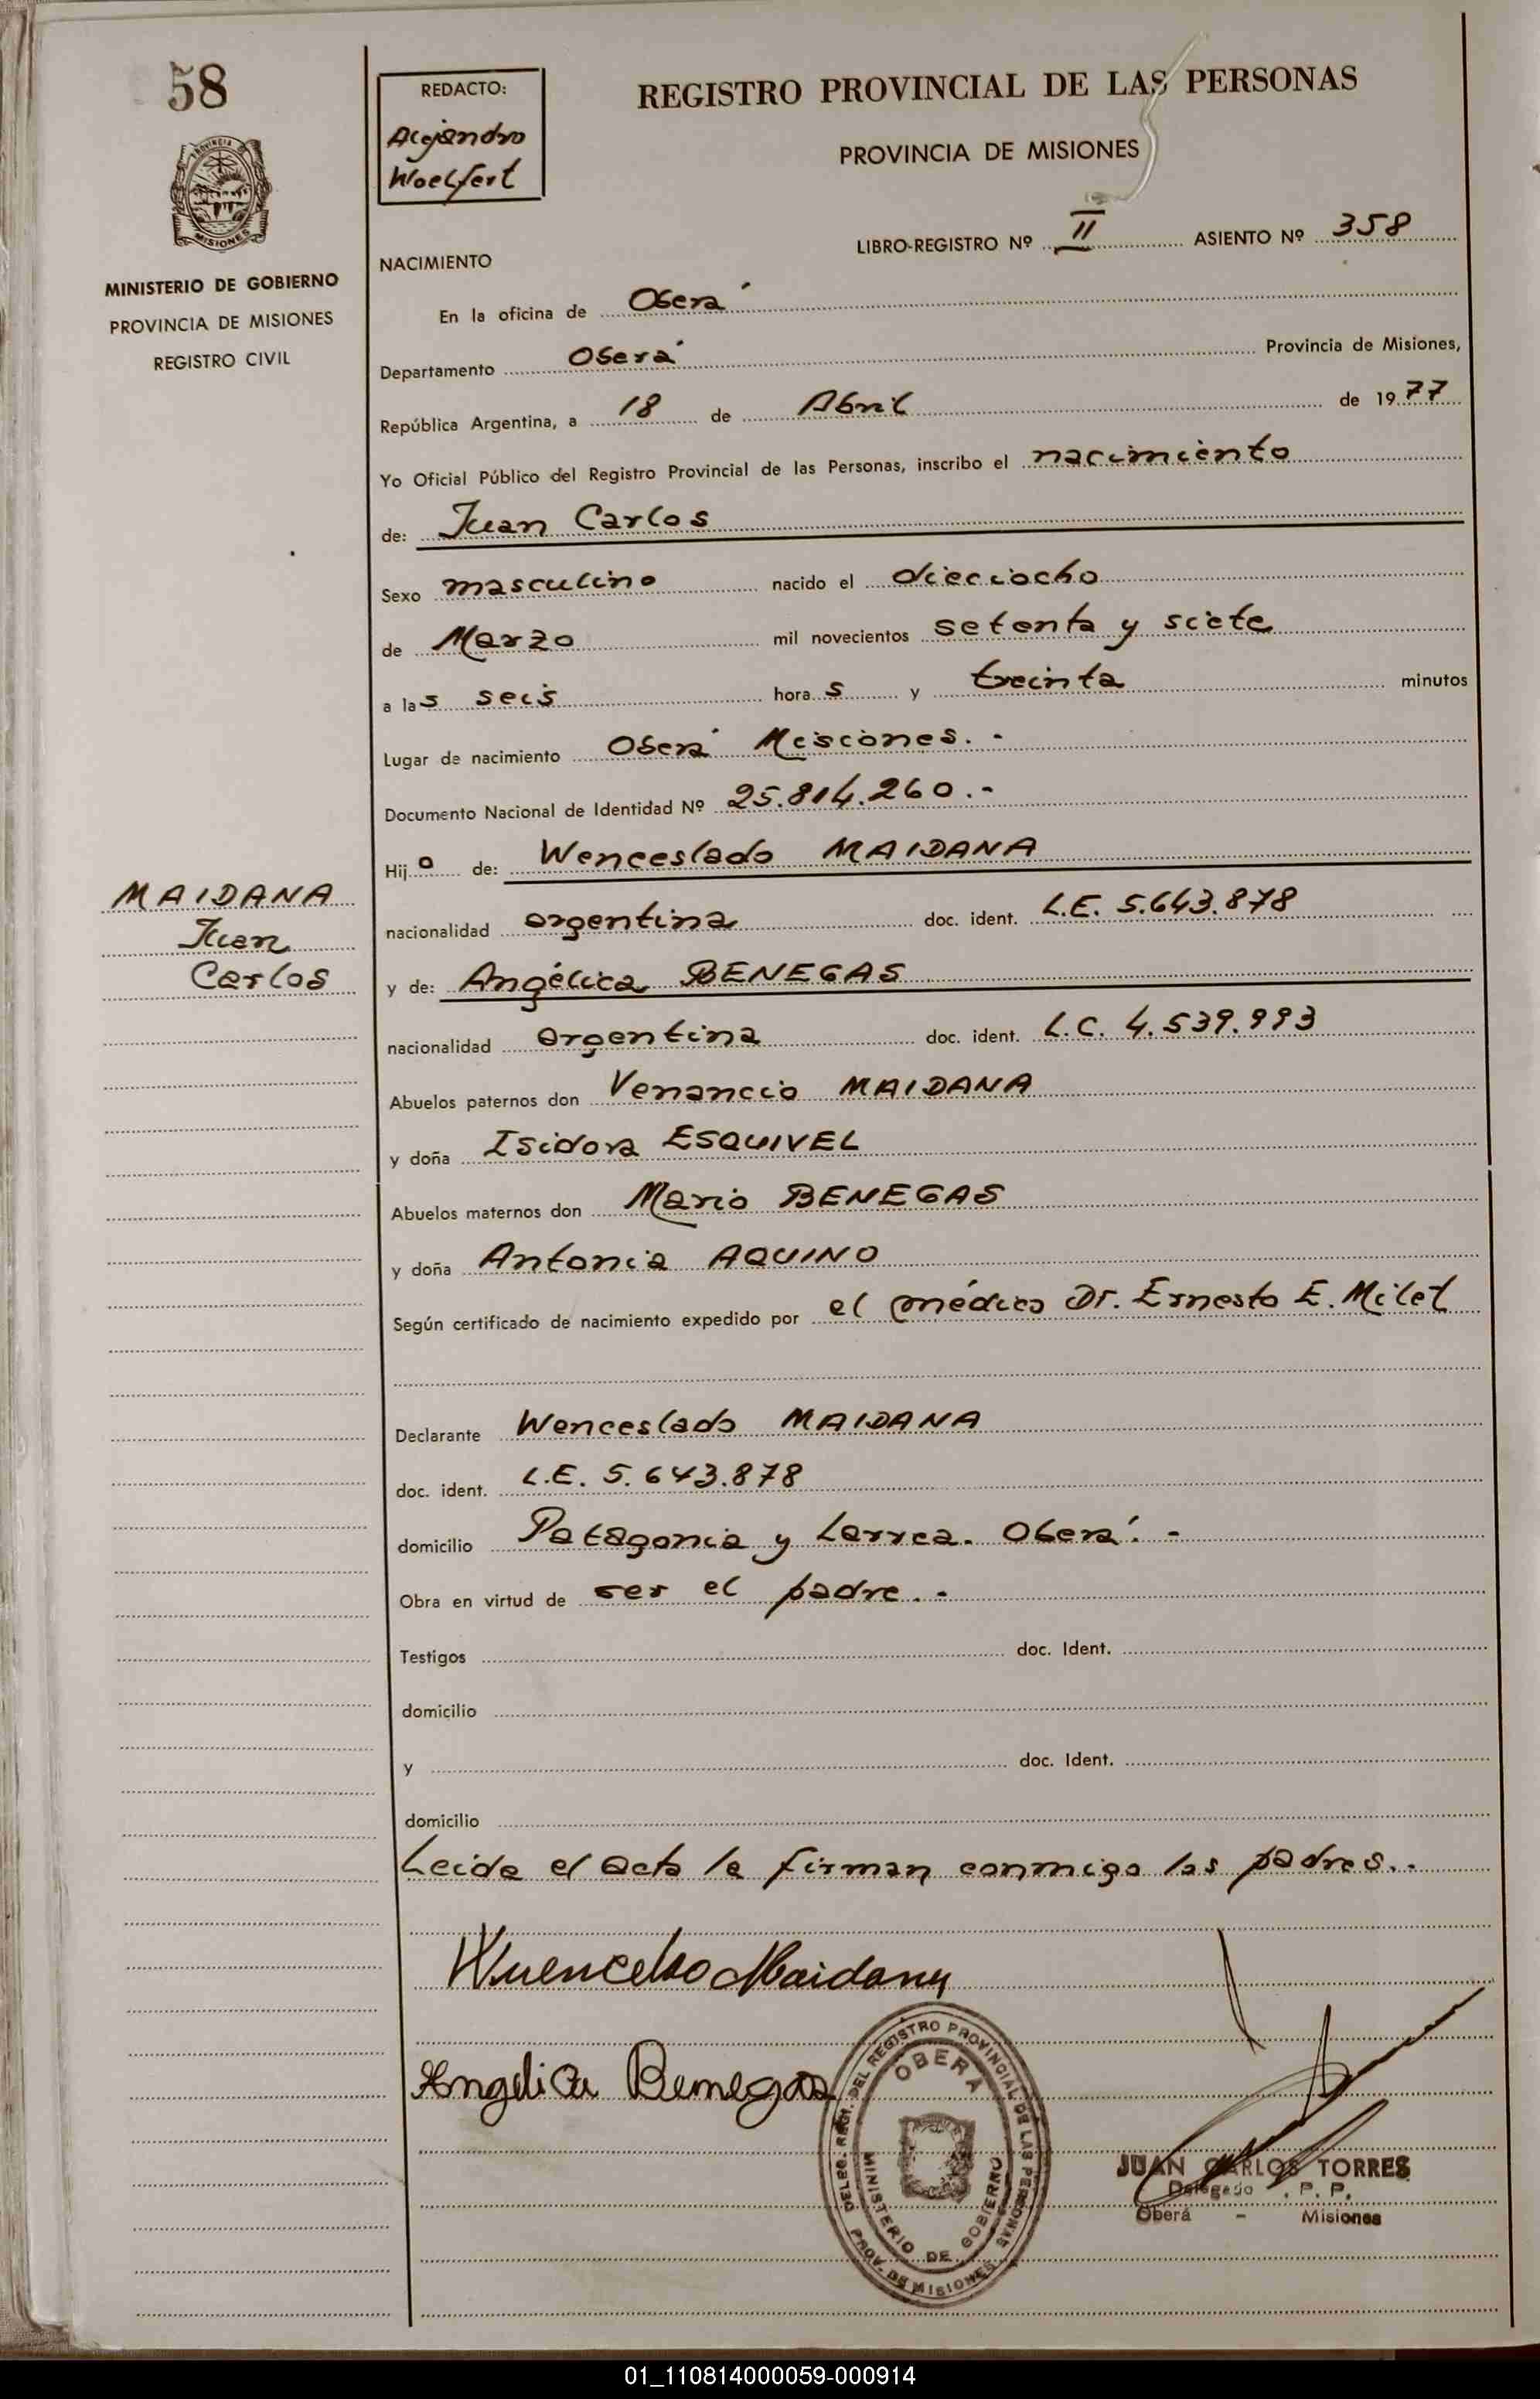 58
PROVINCIA DE
MISIONES
MINISTERIO DE GOBIERNO
PROVINCIA DE MISIONES
REGISTRO CIVIL
REDACTO:
Alejandro
Woelfert
REGISTRO PROVINCIAL DE LAS PERSONAS
PROVINCIA DE MISIONES
LIBRO-REGISTRO Nº II ASIENTO Nº 358
NACIMIENTO
En la oficina de Oberá
Departamento Oberá Provincia de Misiones,
República Argentina, a 18 de Abril de 1977
Yo Oficial Público del Registro Provincial de las Personas, inscribo el nacimiento
de: Juan Carlos
Sexo masculino nacido el dieciocho
de Marzo mil novecientos setenta y siete
a las seis horas y treinta minutos
Lugar de nacimiento Oberá Misiones.-
Documento Nacional de Identidad Nº 25.814.260.-
Hijo de: Wenceslado MAIDANA
MAIDANA
Juan
Carlos
nacionalidad argentina doc. ident. L.E. 5.643.878
y de: Angélica BENEGAS
nacionalidad argentina doc. ident. L.C. 4.539.993
Abuelos paternos don Venancio MAIDANA
y doña Isidora ESQUIVEL
Abuelos maternos don Mario BENEGAS
y doña Antonia AQUINO
Según certificado de nacimiento expedido por el médico Dr. Ernesto E. Milet
Declarante Wenceslado MAIDANA
doc. ident. L.E. 5.643.878
domicilio Patagonia y Larrea. Oberá.-
Obra en virtud de ser el padre.-
Testigos doc. Ident.
domicilio
y doc. Ident.
domicilio
Leida el acta la firman conmigo los padres.-
Wuencelao Maidana
Angelica Benegas
DELEG. REGI. DEL REGISTRO PROVINCIAL DE LAS PERSONAS
OBERA
MINISTERIO DE GOBIERNO
PROV. DE MISIONES
JUAN CARLOS TORRES
Delegado . P. P.
Oberá - Misiones
01_110814000059-000914